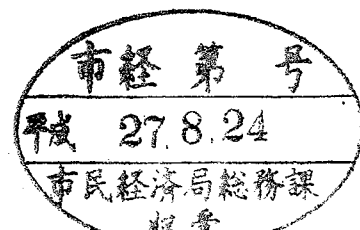 市経第 号
平成 27.8.24
市民経済局総務課